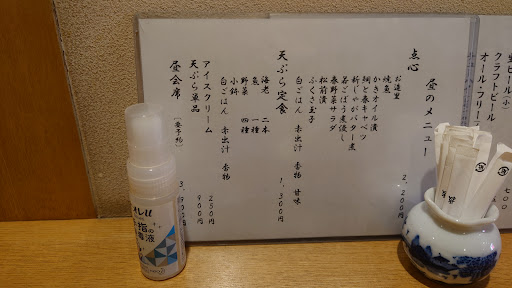 生ビール(小)
クラフトビール
オール・フリー
七〇〇
昼のメニュー
点心 2,200円
お造里
焼魚
かきオイル漬
鯛と春キャベツ
新じゃがバター煮
若ごぼう煮優し
春野菜サラダ
松前漬
ふくさ玉子
白ごはん 赤出汁 香物 甘味
天ぷら定食 1,300円
海老 二本
魚 一種
野菜 四種
小鉢
白ごはん 赤出汁 香物
アイスクリーム 250円
天ぷら単品 900円
昼会席 [要予約]
指の
液